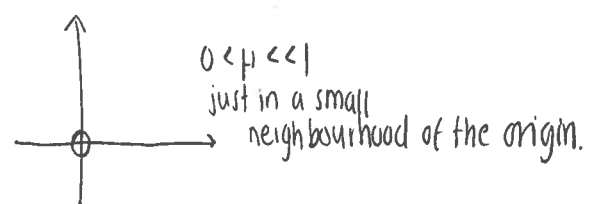 0 < μ << 1
just in a small
neighbourhood of the origin.